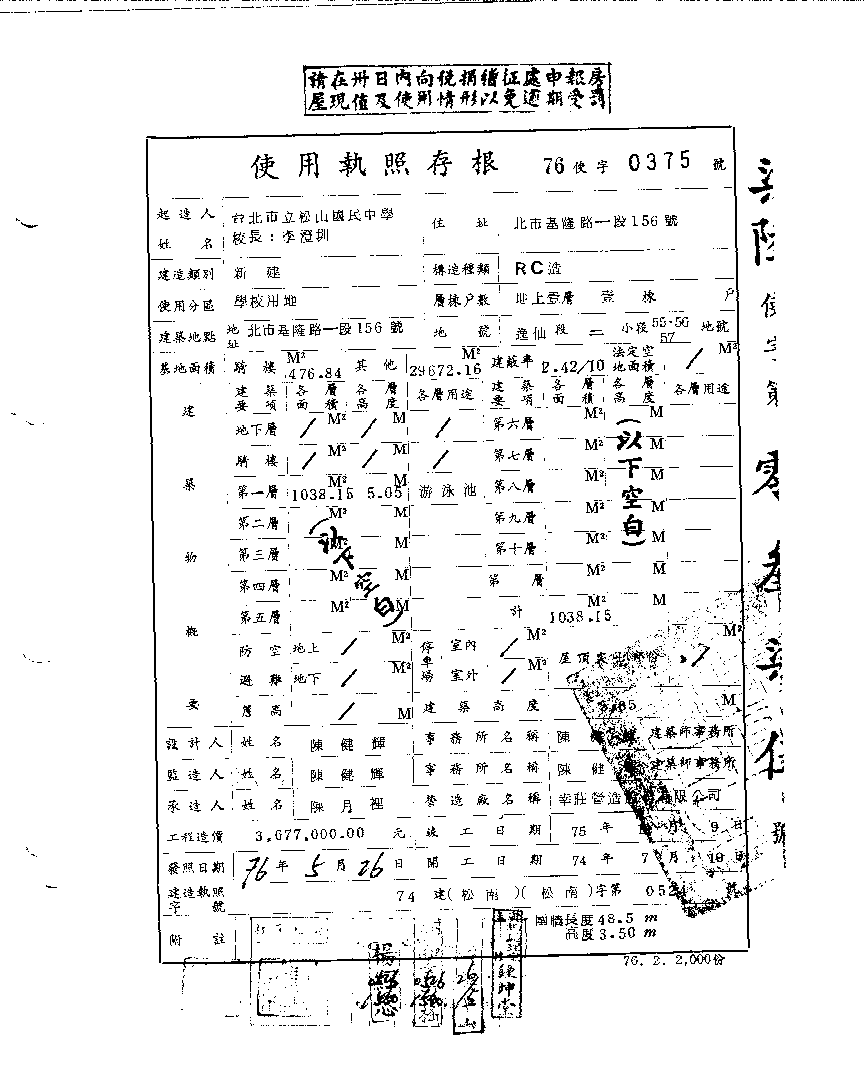 請在卅日內向稅捐稽征處申報房
屋現值及使用情形以免逾期受罰
使用執照存根 76 使字 0375 號
起造人姓名 台北市立松山國民中學 校長：李澄圳 住址 北市基隆路一段156號
建造類別 新建 構造種類 RC造
使用分區 學校用地 層棟戶數 地上壹層 壹棟 戶
建築地點 地址 北市基隆路一段156號 地號 逸仙段二小段55-56 57 地號
基地面積 騎樓 476.84 M² 其他 29672.16 M² 建蔽率 2.42/10 法定空地面積 / M²
建築要項 各層面積 各層高度 各層用途 建築要項 各層面積 各層高度 各層用途
建築物概要
地下層 / M² / M / 第六層 M² M
騎樓 / M² / M / 第七層 M² M
第一層 1038.15 M² 5.05 M 游泳池 第八層 M² M
第二層 M² M 第九層 M² M
第三層 M² M 第十層 M² M
第四層 M² M 第 層 M² M
第五層 M² M 計 1038.15 M² M
(以下空白)
(以下空白)
防空避難 地上 / M² 停車場 室內 / M² 屋頂 M²
地下 / M² 室外 / M²
簷高 / M 建築高度 M
設計人 姓名 陳健輝 事務所名稱 陳健 建築師事務所
監造人 姓名 陳健輝 事務所名稱 陳健 建築師事務所
承造人 姓名 陳月裡 營造廠名稱 幸莊營造 有限公司
工程造價 3,677,000.00 元 竣工日期 75年 月 9日
發照日期 76年5月26日 開工日期 74年7月10日
建造執照字號 74 建(松南)(松南)字第 052 號
附註 圍牆長度48.5m
高度3.50m
76. 2. 2,000份